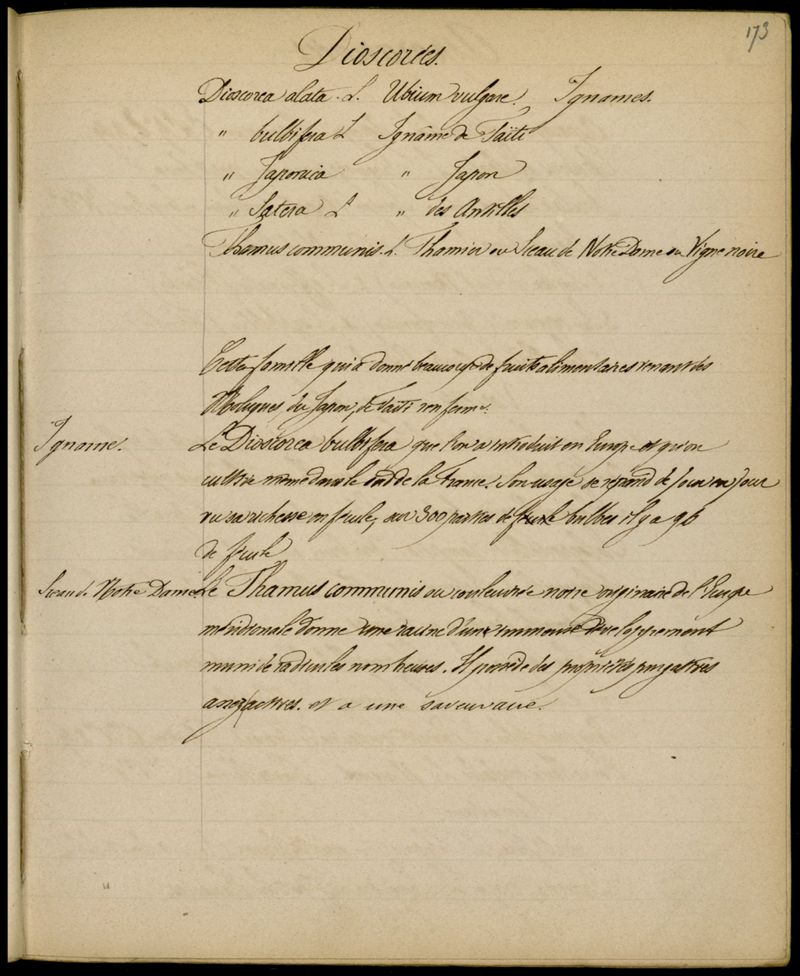 173
Dioscorées.
Dioscorea alata. L. Ubium vulgare. Ignames.
" bulbifera L Ignâme de Taïti
" Japonica " Japon
" Sativa L " des Antilles
Thamus communis. L. Thamier ou Sceau de Notre Dame ou Vigne noire
Cette famille qui a donné beaucoup de fruits alimentaires venant des
Moluques du Japon, de Taïti renferme.
Ignames. Le Dioscorea bulbifera que l'on a introduit en Europe et qu'on
cultive même dans le de la France. Son usage se répand de jour en jour
vu sa richesse en fécule, sur 300 parties de bulbes il y a 96
de fécule
Sceau de Notre Dame Le Thamus communis ou couleuvrée noire originaire de l'Europe
méridionale donne une racine d'une immense développement
muni de radicules nombreuses. Il possède des propriétés purgatives
assez actives. et a une saveur âcre.